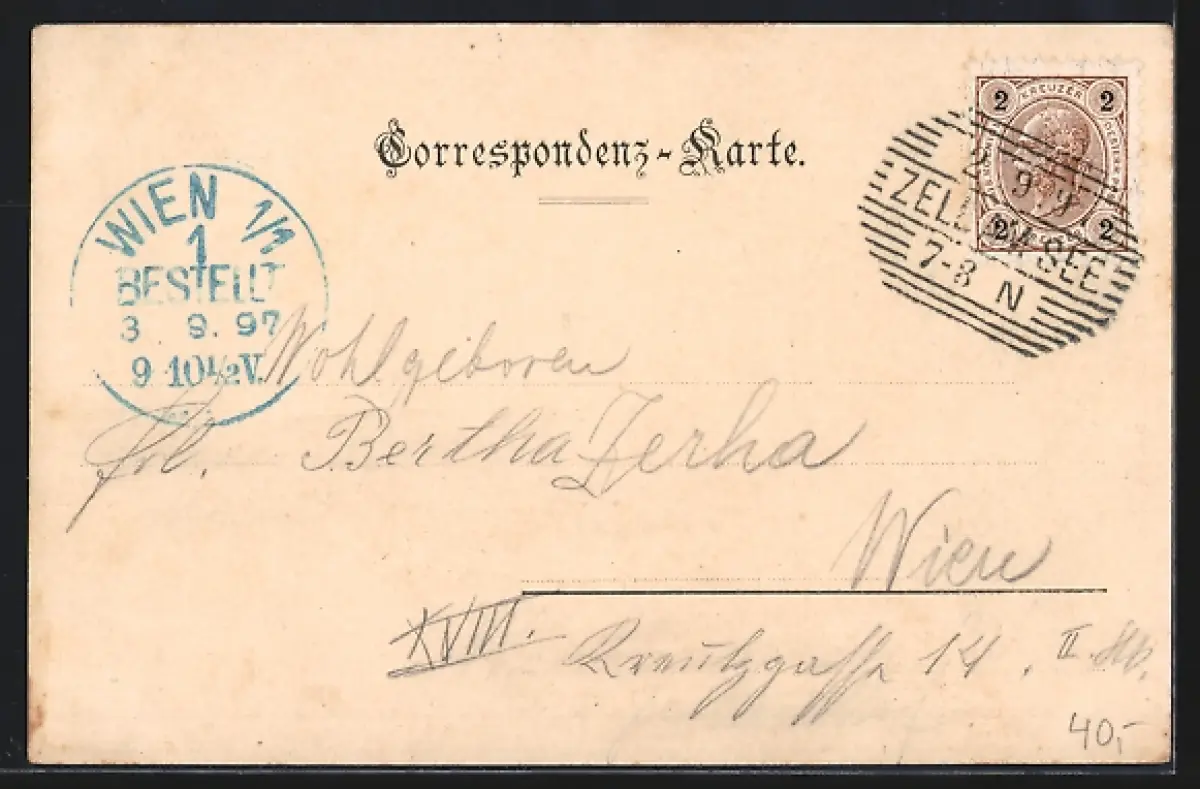 Correspondenz-Karte.
2 KREUZER 2
2 2
ZELL AM SEE
7-8 N
WIEN 1/1
1
BESTELLT
3 9. 97
9-10½V.
Wohlgeboren
Frl. Bertha Zerha
Wien
XVIII. Kreutzgasse 14. II. St.
40,-